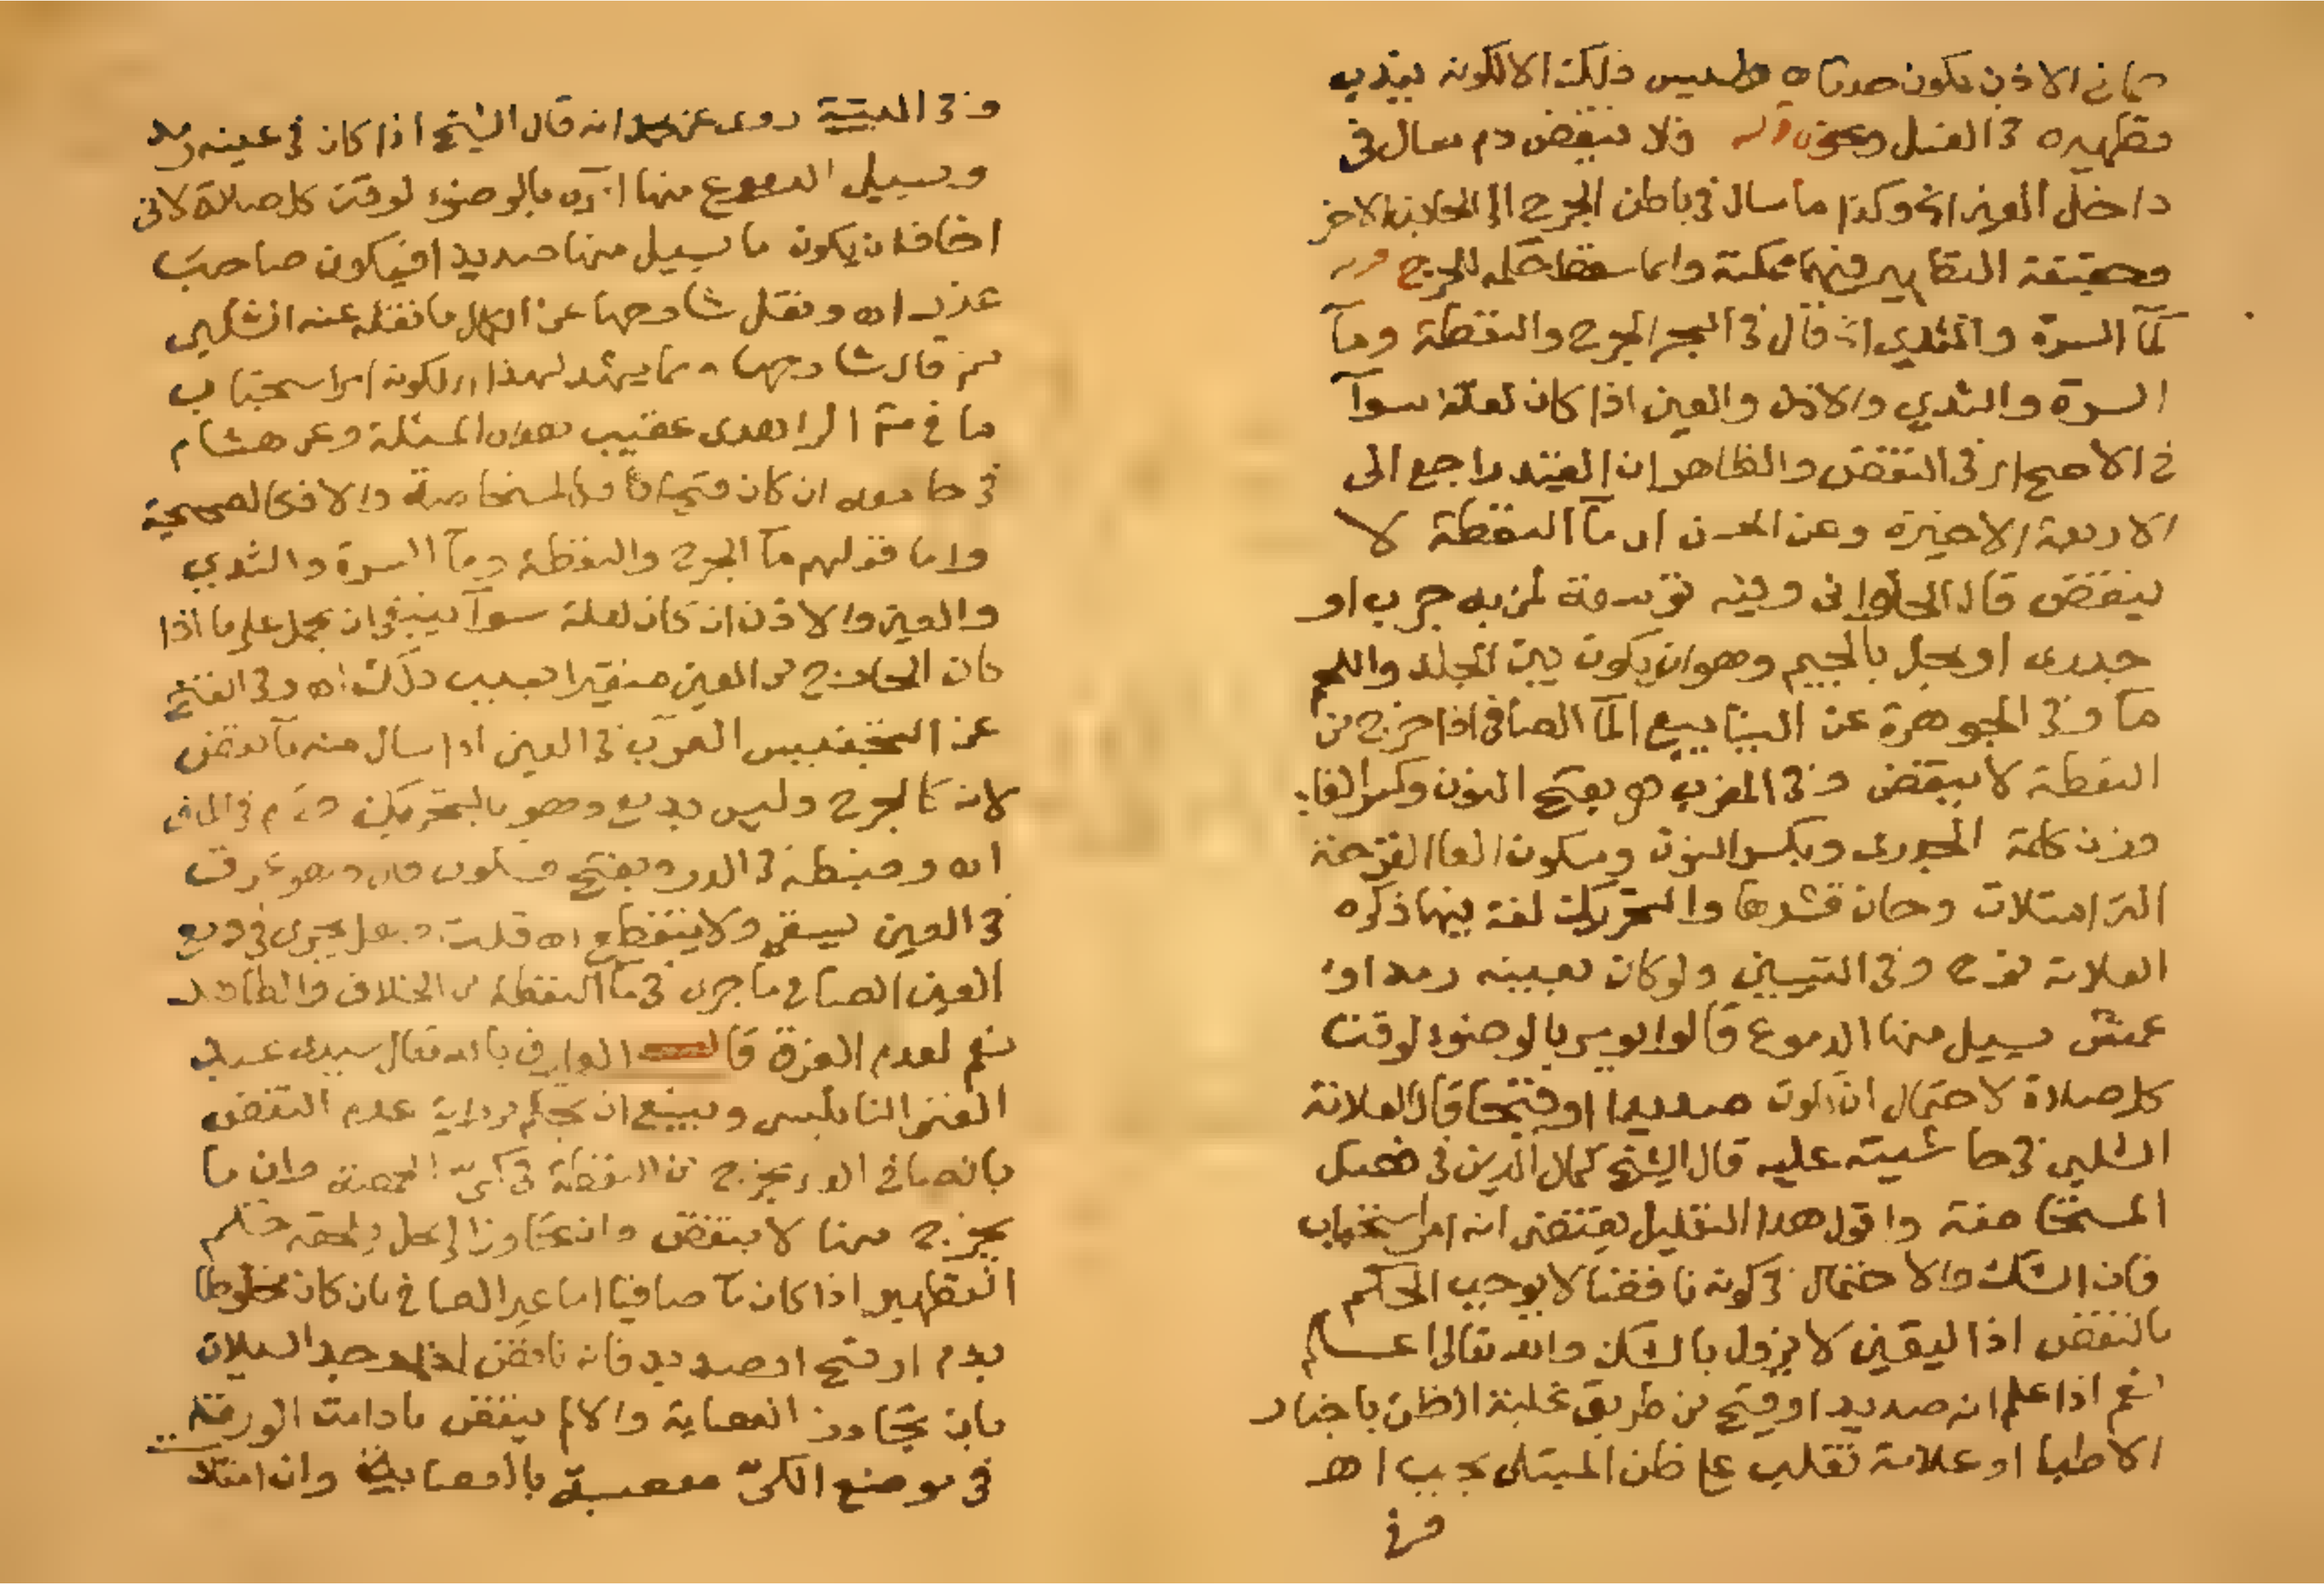 صماخ الاذن يكون حدثا اه وليس ذلك الا لكونه يندب
تطهيره في الغسل ونحوه قوله فلا ينقض دم سال في
داخل العين الخ وكذا ما سال في باطن الجرح الى الجانب الاخر
وحقيقة التطهير فيهما ممكنة وانما سقط حكمه للحرج قوله
كما السرة والثدي الخ قال في البحر الجرح والنفطة وماء
السرة والثدي والاذن والعين اذا كان لعلة سوآ
في الاصح ار في النقض والظاهر ان القيد راجع الى
الاربعة الاخيرة وعن الحسن ان مآ النفطة لا
ينقض قال الحلواني وفيه توسعة لمن به جرب او
جدرى او مجل بالجيم وهو ان يكون بين الجلد واللحم
مآ وفي الجوهرة عن الينابيع المآ الصافي اذا خرج من
النفطة لا ينقض وفي المغرب هو بفتح النون وكسر الفاء
وزن كلمة الجدرى وبكسر النون وسكون الفا القرحة
التي امتلات وحان قشرها والتحريك لغة فيها ذكره
العلامة نوح وفي التبيين ولو كان بعينه رمد او
عمش يسيل منها الدموع قالوا يومر بالوضوء لوقت
كل صلاة لاحتمال ان يكون صديدا او قيحا قال العلامة
الشلبي في حاشيته عليه قال الشيخ كمال الدين في فصل
المستحاضة واقول هذا التعليل يقتضي انه امر استحباب
فان الشك والاحتمال في كونه ناقضا لا يوجب الحكم
بالنقض اذ اليقين لا يزول بالشك والله تعالى اعلم
نعم اذا علم انه صديد او قيح من طريق غلبة الظن باخبار
الاطبا او علامة تغلب على ظن المبتلى يجب اه
وفي
وفي المنية روى عن محمد انه قال الشيخ اذا كان في عينه رمد
ويسيل الدموع منها امره بالوضوء لوقت كل صلاة لاني
اخاف ان يكون ما يسيل منها صديدا فيكون صاحب
عذر اه ونقل شارحها عن الكمال ما نقله عنه الشلبي
ثم قال شارحها ومما يشهد لهذا ار لكونه امر استحباب
ما في شرح الزاهدى عقيب هذه المسئلة وعن هشام
في جامعه ان كان قيحا فالمستحاضة والا فكالصحيحة
واما قولهم مآ الجرح والنفطة ومآ السرة والثدي
والعين والاذن ان كان لعلة سوآ ينبغي ان يحمل على ما اذا
كان الخارج من العين متغيرا بسبب ذلك اه وفي الفتح
عن التجنيس الغرب في العين اذا سال منه مآ نقض
لانه كالجرح وليس بدمع وهو بالتحريك ورم في الماق
اه وضبطه في الدرر بفتح وسكون قال وهو عرق
في العين يسقي ولا ينقطع اه قلت وهل يجرى في دمع
العين الصافي ما جرى في مآ النفطة من الخلاف والظاهر
نعم لعدم الفرق قال العارف بالله تعالى سيدى عبد
الغنى النابلسي وينبغي ان يحكم برواية عدم النقض
بالصافي الذى يخرج من النفطة في كي الحمصة وان ما
يخرج منها لا ينقض وان تجاوز الى محل يلحقه حكم
التطهير اذا كان مآ صافيا اما غير الصافي بان كان مخلوطا
بدم او قيح او صديد فانه ناقض اذا وجد السيلان
بان تجاوز العصابة والا لم ينقض ما دامت الورقة
في موضع الكي معصبة بالعصابة وان امتلا